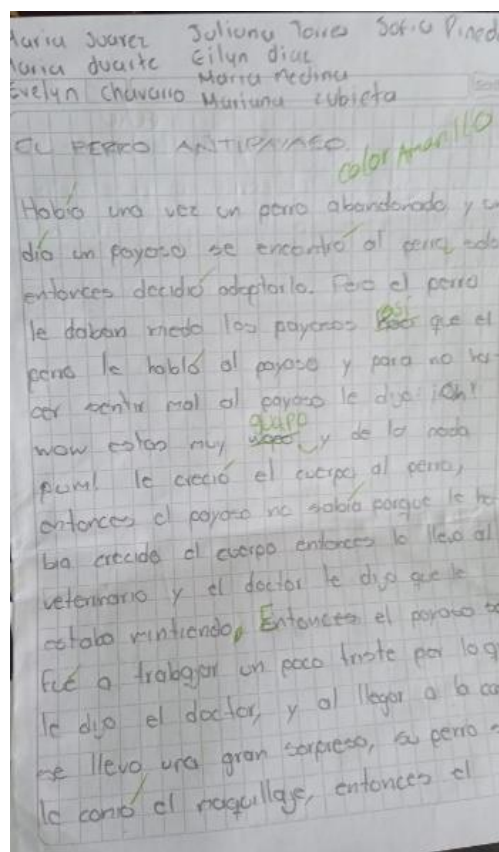 Maria Suarez Juliana Torres Sofia Pined
Maria duarte Eilyn diaz
Evelyn chavarro Maria medina
Mariana cubieta
EL PERRO ANTIPAYASO
color Amarillo
Había una vez un perro abandonado y u
día un payaso se encontró al perro solo
entonces decidió adoptarlo. Pero el perro
le daban miedo los payasos así que el
perro le habló al payaso y para no ha
cer sentir mal al payaso le dijo: ¡Oh!
guapo
wow estas muy y de la nada
pum! le creció el cuerpo al perro,
entonces el payaso no sabía porque le ha
bia crecido el cuerpo entonces lo llevo al
veterinario y el doctor le dijo que le
estaba mintiendo, Entonces el payaso se
fué a trabajar un poco triste por lo q
le dijo el doctor, y al llegar a la ca
se llevo una gran sorpresa, su perro s
le comió el maquillaje, entonces el